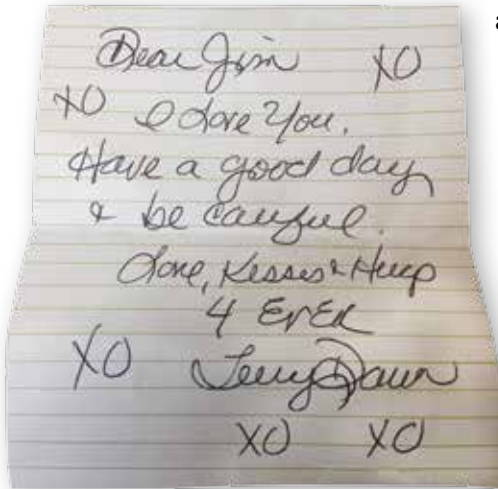 Dear Jim XO
XO I Love You.
Have a good day
& be careful.
Love, Kisses & Hugs
4 EVER
XO Dawn
XO XO